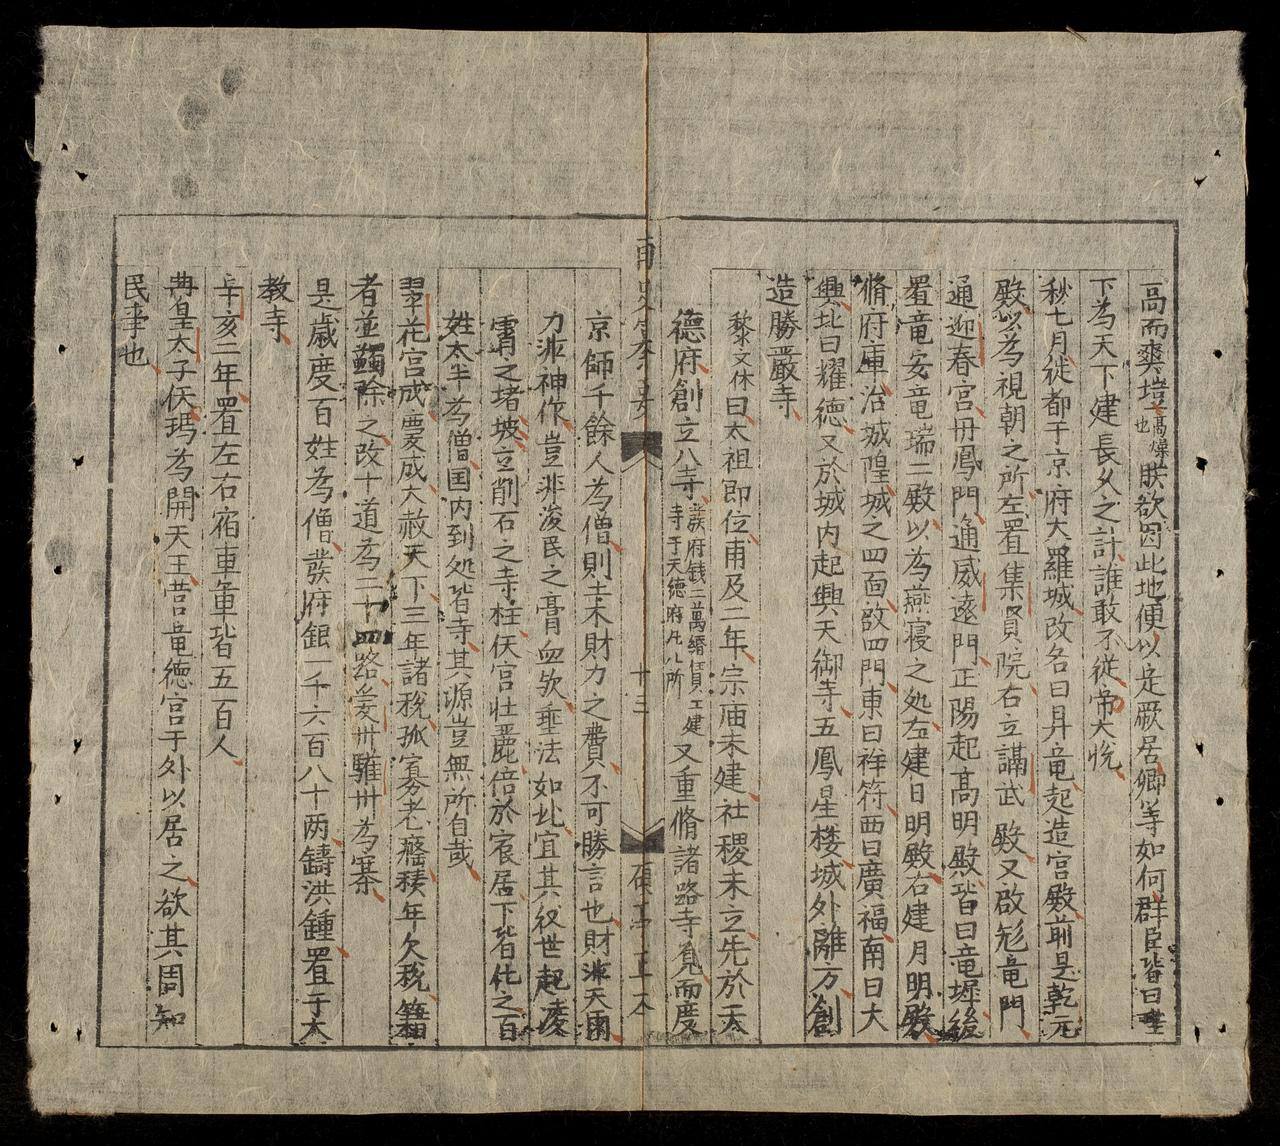 高而爽塏高燥也朕欲因此地便以是厥居卿等如何群臣皆曰陛
下為天下建長久之計誰敢不從帝大悅
秋七月徙都于京府大羅城改名曰昇竜起造宮殿前是乾元
殿以為視朝之所左置集賢院右立講武殿又啟飛竜門
通迎春宮丹鳳門通威遠門正陽起高明殿皆曰竜墀後
置竜安竜瑞二殿以為燕寝之処左建日明殿右建月明殿
脩府庫治城隍城之四面啟四門東曰祥符西曰廣福南曰大
興北曰耀德又於城内起興天御寺五鳳星楼城外離方創
造勝嚴寺
黎文休曰太祖即位甫及二年宗庙未建社稷未立先於天
德府創立八寺發府錢二萬緡賃工建寺于天德府凢八所又重脩諸路寺覌而度
十三
京師千餘人為僧則土木財力之費不可勝言也財非天雨
力非神作豈非浚民之膏血欤垂法如此宜其後世起凌
霄之堵坡立削石之寺柱伕宮壮麗倍於宸居下皆化之百
姓太半為僧国内到処皆寺其源豈無所自哉
翠花宮成慶成大赦天下三年諸稅孤寡老癃積年欠稅
者並蠲除之改十道為二十四路爱卅驩卅為寨
是歳度百姓為僧發府銀一千六百八十两鑄洪鍾置于大
教寺
辛亥二年置左右宿車軍皆五百人
冊皇太子伕瑪為開天王营竜德宮于外以居之欲其周知
民事也